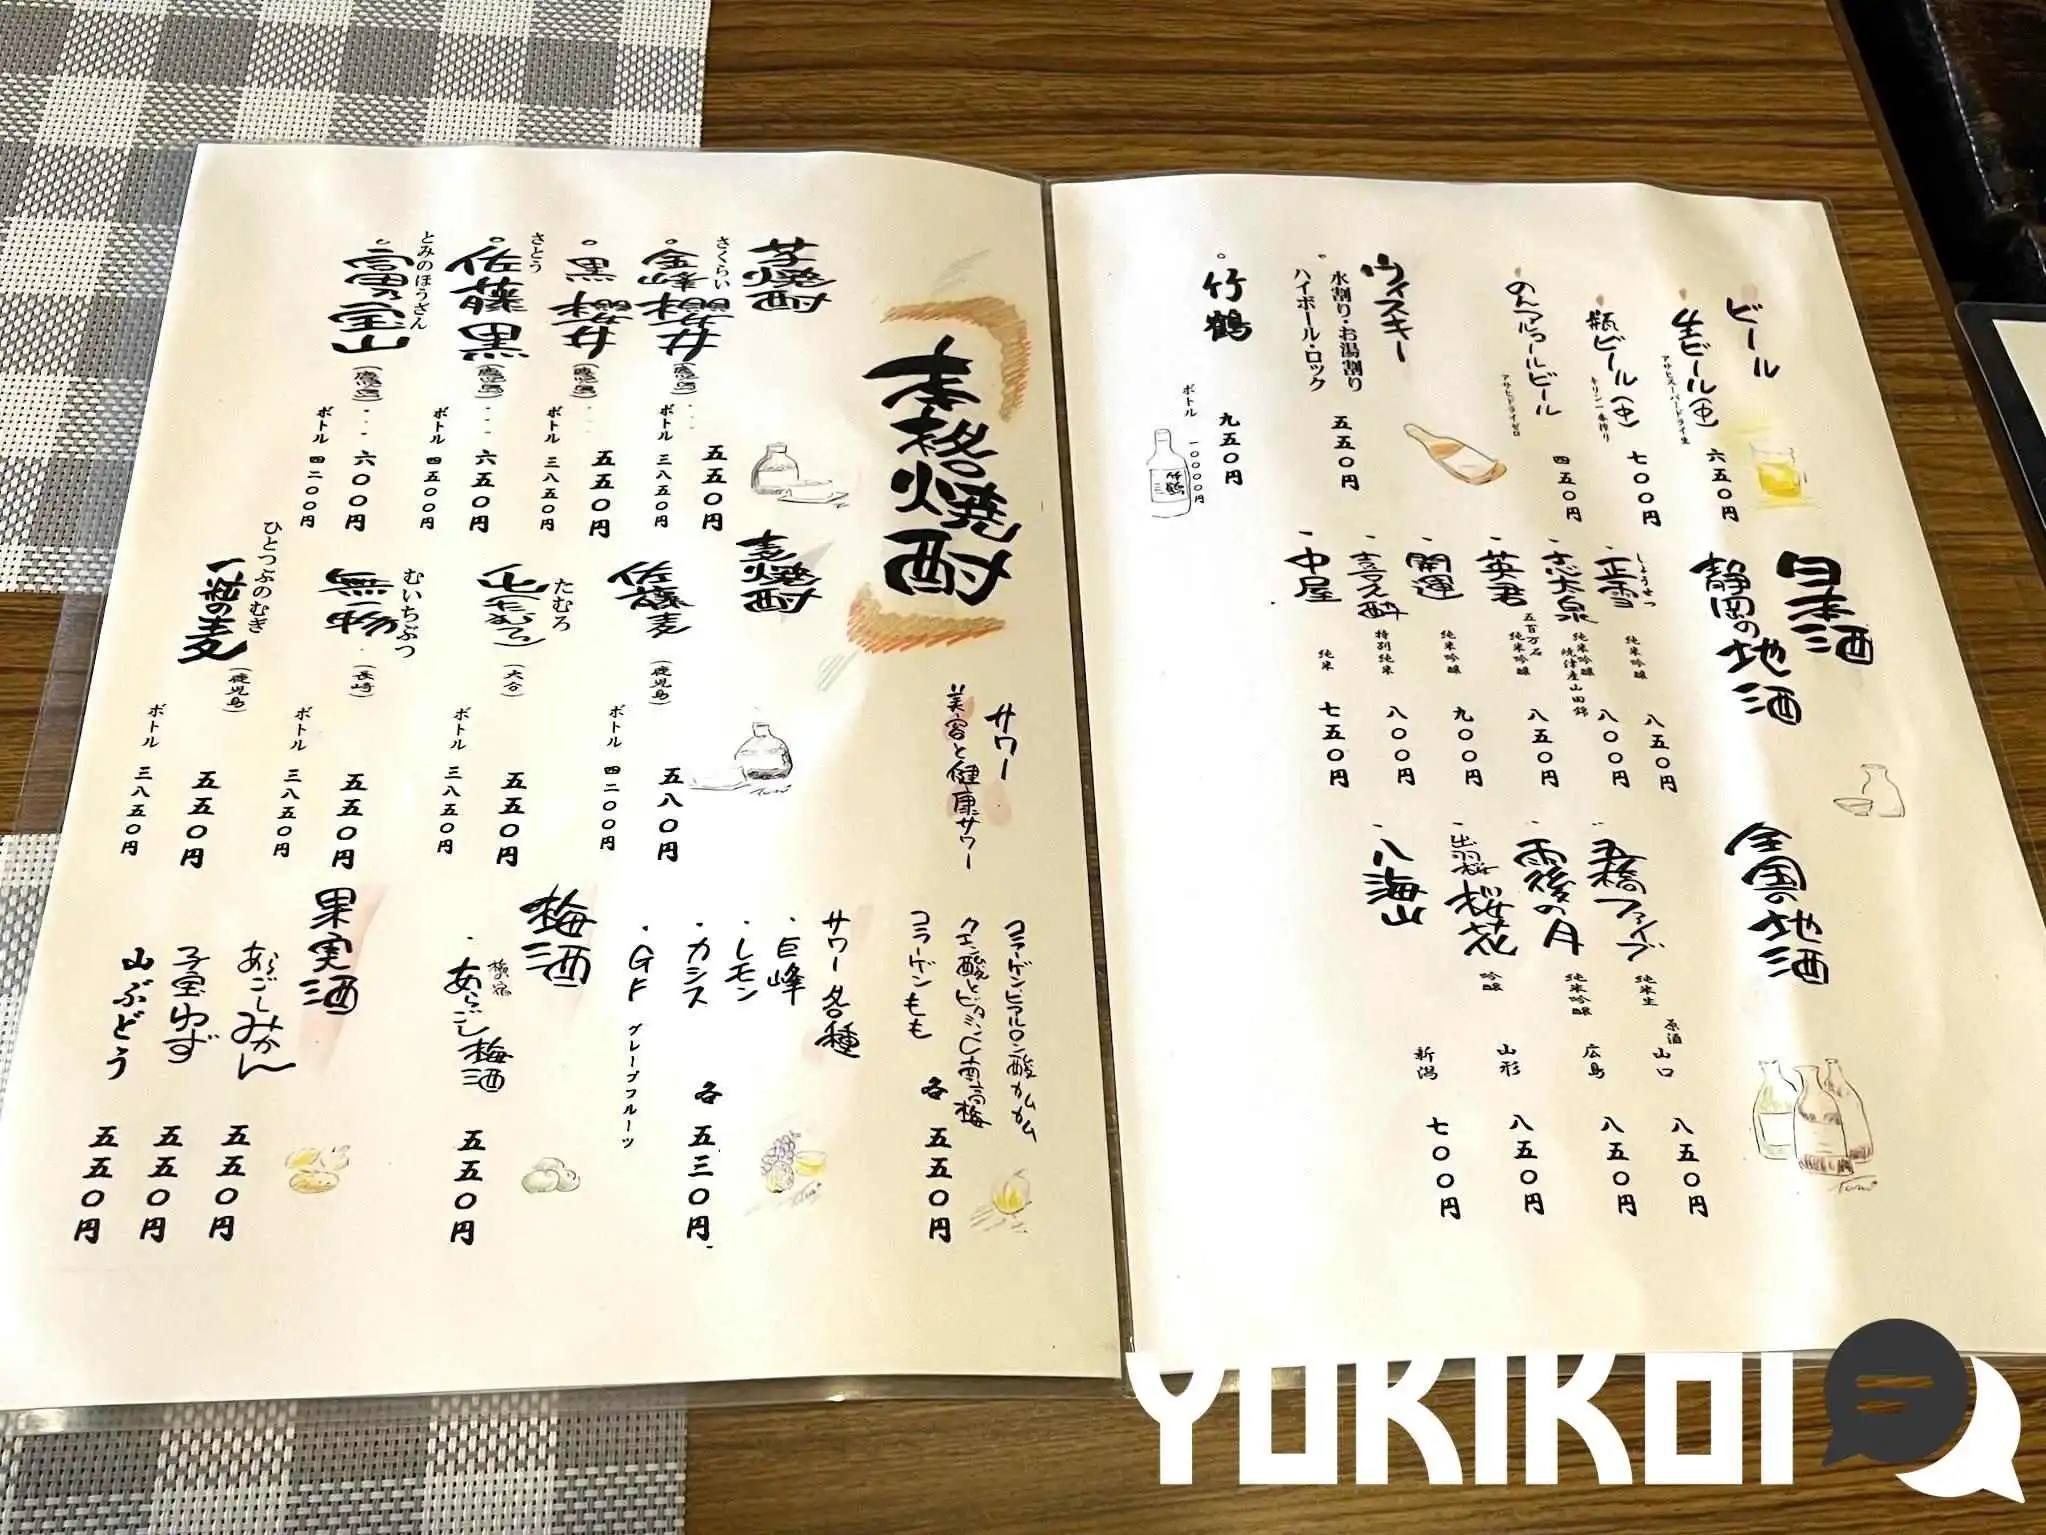 ビール
生ビール(中)
アサヒスーパードライ生
六五〇円
瓶ビール(中)
キリン一番搾り
七〇〇円
のんアルコールビール
アサヒドライゼロ
四五〇円
ウィスキー
水割り・お湯割り
ハイボール・ロック
五五〇円
竹鶴
九五〇円
ボトル 一〇〇〇〇円
竹鶴
日本酒
静岡の地酒
しょうせつ
正雪
純米吟醸
八五〇円
志太泉
純米吟醸
焼津産山田錦
八〇〇円
英君
五百万石
純米吟醸
八五〇円
開運
純米吟醸
九〇〇円
喜久酔
特別純米
八〇〇円
中屋
純米
七五〇円
全国の地酒
五橋ファイブ
純米生
原酒
山口
八五〇円
雨後の月
純米吟醸
広島
八五〇円
出羽桜
桜花
吟醸
山形
八五〇円
八海山
新潟
七〇〇円
本格焼酎
芋焼酎
さくらい
金峰櫻井
(鹿児島)
五五〇円
ボトル 三八五〇円
黒櫻井
(鹿児島)
五五〇円
ボトル 三八五〇円
さとう
佐藤黒
(鹿児島)
六五〇円
ボトル 四五〇〇円
とみのほうざん
富乃宝山
(鹿児島)
六〇〇円
ボトル 四二〇〇円
麦焼酎
佐藤麦
(鹿児島)
五八〇円
ボトル 四二〇〇円
たむろ
(大分)
五五〇円
ボトル 三八五〇円
むいちぶつ
無一物
(長崎)
五五〇円
ボトル 三八五〇円
ひとつぶのむぎ
一粒の麦
(鹿児島)
五五〇円
ボトル 三八五〇円
サワー
美容と健康サワー
コラーゲンヒアルロン酸カムカム
クエン酸とビタミンC南高梅
コラーゲンもも
各五五〇円
サワー各種
巨峰
レモン
カシス
GF グレープフルーツ
各五三〇円
梅酒
梅の宿
あらごし梅酒
五五〇円
果実酒
あらごしみかん
五五〇円
子宝ゆず
五五〇円
山ぶどう
五五〇円
YORIKOI